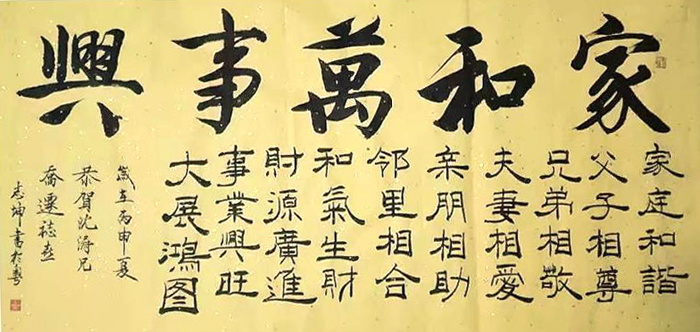 家和萬事興
家庭和諧
父子相尊
兄弟相敬
夫妻相愛
亲朋相助
邻里相合
和氣生財
財源廣進
事業興旺
大展鴻图
歲在丙申夏
恭賀沈兄
喬遷誌喜
志坤書於粤